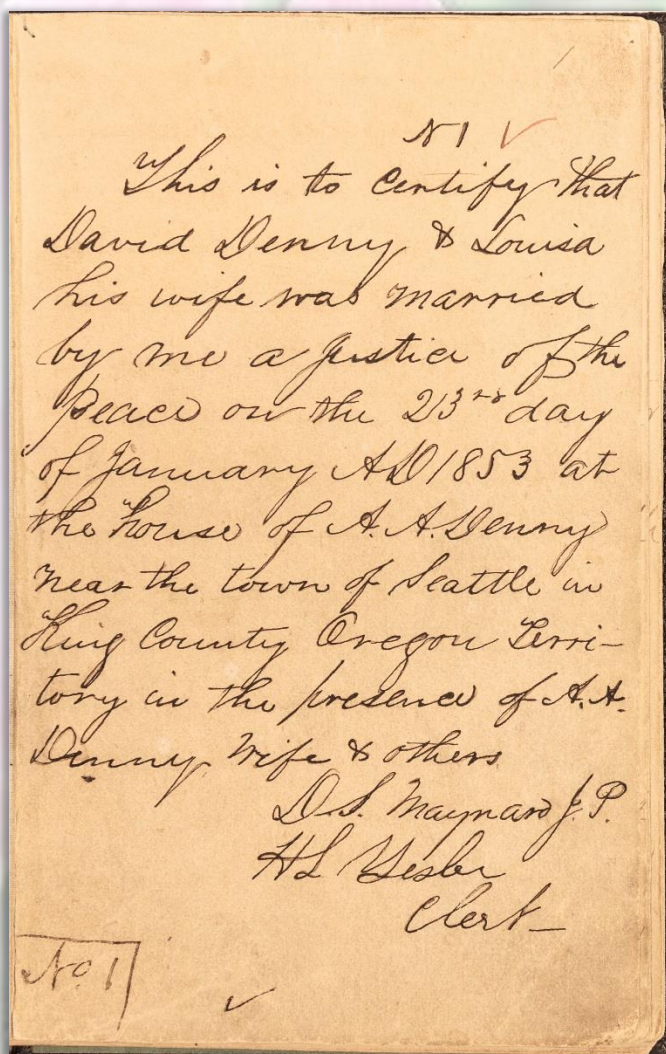 N 1 ✓
This is to certify that
David Denny & Louisa
his wife was married
by me a Justice of the
Peace on the 23rd day
of January AD 1853 at
the house of A. A. Denny
near the town of Seattle in
King County Oregon Terri-
tory in the presence of A. A.
Denny Wife & others
D. S. Maynard J. P.
H L Yesler
Clerk
No. 1